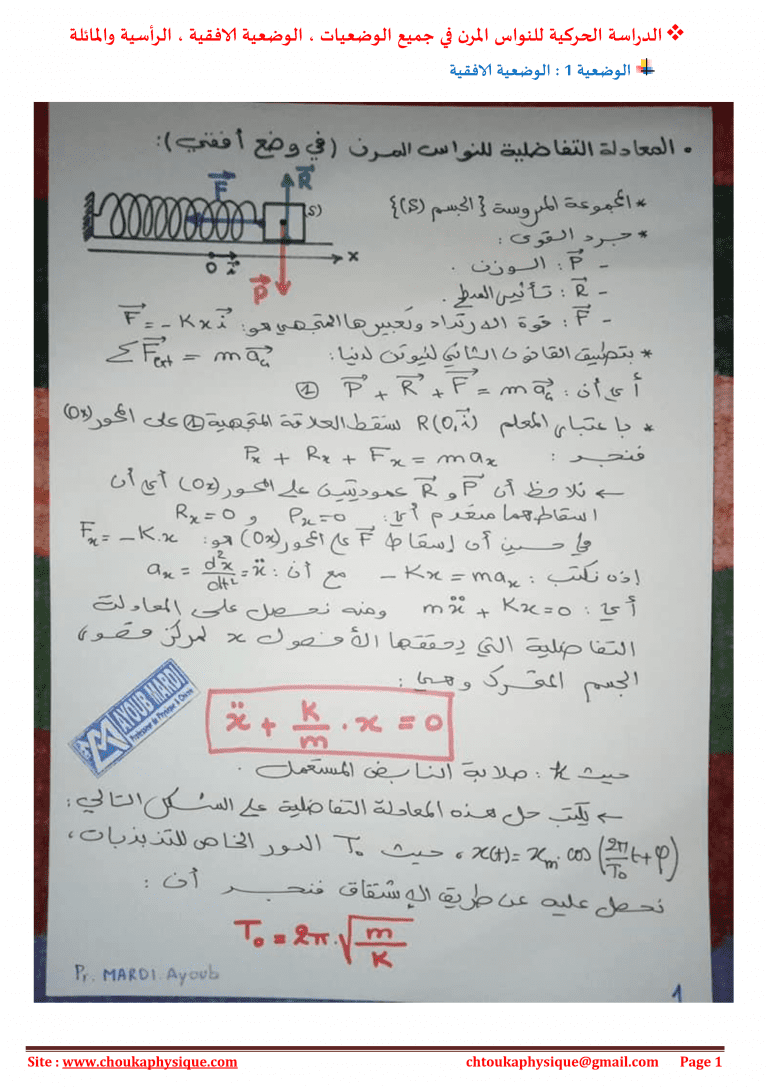 ❖ الدراسة الحركية للنواس المرن في جميع الوضعيات ، الوضعية الافقية ، الرأسية والمائلة
الوضعية 1 : الوضعية الافقية
• المعادلة التفاضلية للنواس المرن (في وضع أفقي):
* المجموعة المدروسة {الجسم (S)}
* جرد القوى :
- P⃗ : الوزن .
- R⃗ : تأثير السطح .
- F⃗ : قوة الارتداد وتعبيرها المتجهي هو: F⃗ = - K x i⃗
F⃗ R⃗ (S) O i⃗ x P⃗
* بتطبيق القانون الثاني لنيوتن لدينا: Σ F⃗ext = m a⃗G
أي أن : P⃗ + R⃗ + F⃗ = m a⃗G ①
* باعتبار المعلم R(O,i⃗) نسقط العلاقة المتجهية ① على المحور (Ox)
فنجد : Px + Rx + Fx = m ax
← نلاحظ أن P⃗ و R⃗ عموديتين على المحور (Ox) أي أن
اسقاطهما منعدم أي: Px = 0 و Rx = 0
في حين أن إسقاط F⃗ على المحور (Ox) هو: Fx = - K.x
إذن نكتب : - Kx = m ax مع أن : ax = d²x/dt² = ẍ
أي : mẍ + Kx = 0 ومنه نحصل على المعادلة
التفاضلية التي يحققها الأفصول x لمركز قصور
الجسم المتحرك وهي :
ẍ + K/m . x = 0
AYOUB MARDI
Professeur de Physique & Chimie
حيث K : صلابة النابض المستعمل .
← يكتب حل هذه المعادلة التفاضلية على الشكل التالي :
x(t) = xm . cos (2π/T₀ t + φ) ، حيث T₀ الدور الخاص للتذبذبات ،
نحصل عليه عن طريق الإشتقاق فنجد أن :
T₀ = 2π . √(m/K)
Pr. MARDI. Ayoub
1
Site : www.choukaphysique.com chtoukaphysique@gmail.com Page 1